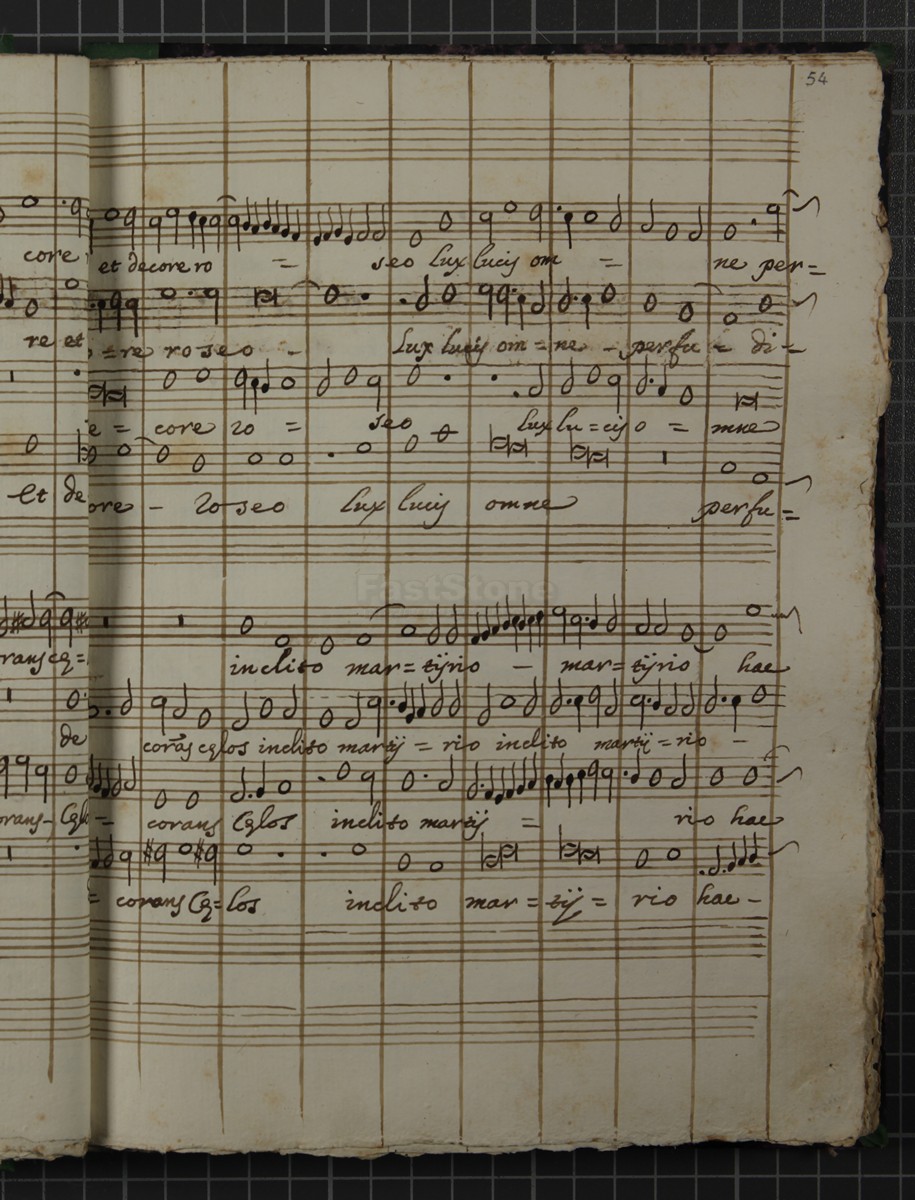 54
core et decore ro = seo Lux lucis om = ne per=
re et =re ro seo - Lux lucis om = ne - perfu = di=
e = core ro = seo Lux lu = cis o = mne
et de ore - roseo Lux lucis omne perfu=
FastStone
inclito mar=tÿrio - mar=tÿrio hae
de corās cęlos inclito martÿ = rio inclito martÿ=rio -
corans Cęlos inclito martÿ = rio hae
corans Cę=los inclito mar = tÿ = rio hae -